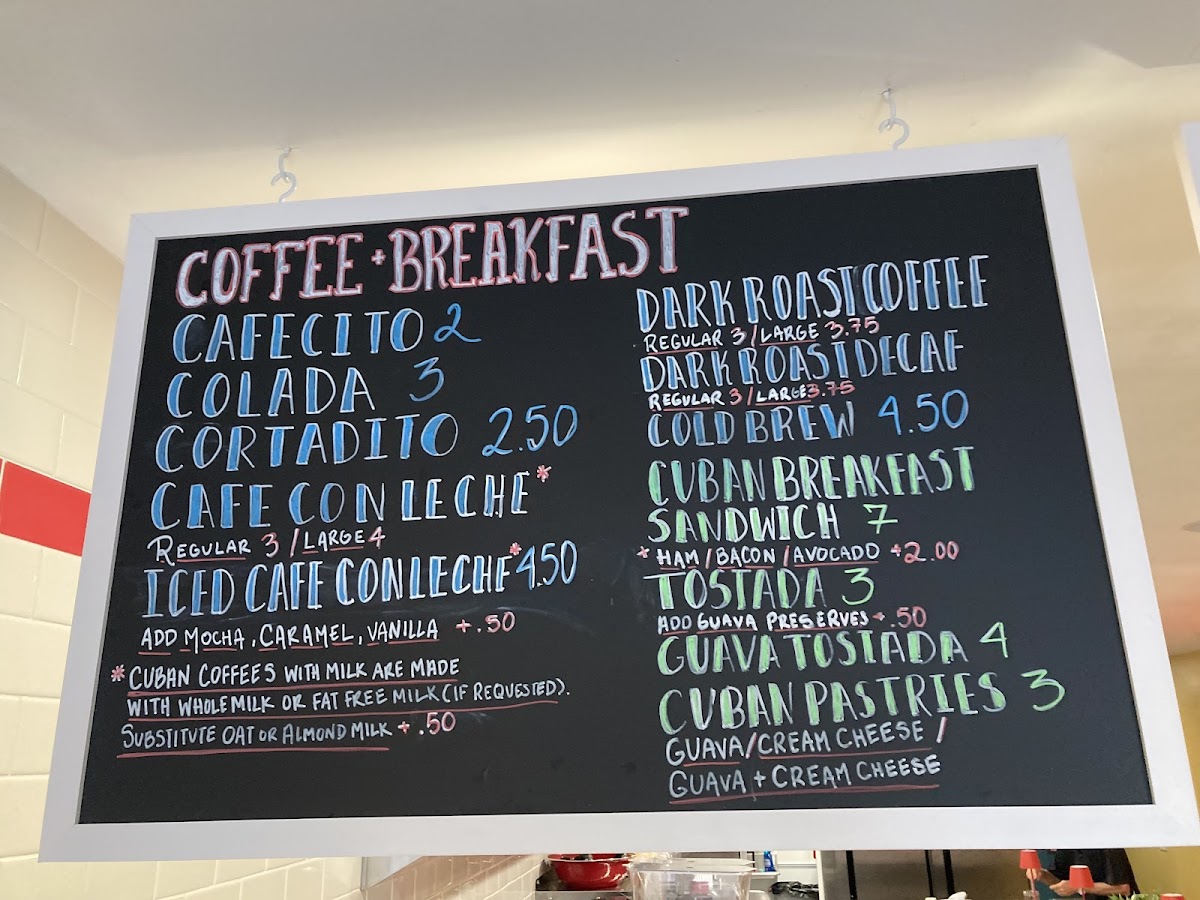 COFFEE + BREAKFAST
CAFECITO 2
COLADA 3
CORTADITO 2.50
CAFE CON LECHE*
REGULAR 3 / LARGE 4
ICED CAFE CON LECHE* 4.50
ADD MOCHA, CARAMEL, VANILLA +.50
* CUBAN COFFEES WITH MILK ARE MADE
WITH WHOLE MILK OR FAT FREE MILK (IF REQUESTED).
SUBSTITUTE OAT OR ALMOND MILK + .50
DARK ROAST COFFEE
REGULAR 3 / LARGE 3.75
DARK ROAST DECAF
REGULAR 3 / LARGE 3.75
COLD BREW 4.50
CUBAN BREAKFAST
SANDWICH 7
* HAM / BACON / AVOCADO +2.00
TOSTADA 3
ADD GUAVA PRESERVES + .50
GUAVA TOSTADA 4
CUBAN PASTRIES 3
GUAVA / CREAM CHEESE /
GUAVA + CREAM CHEESE